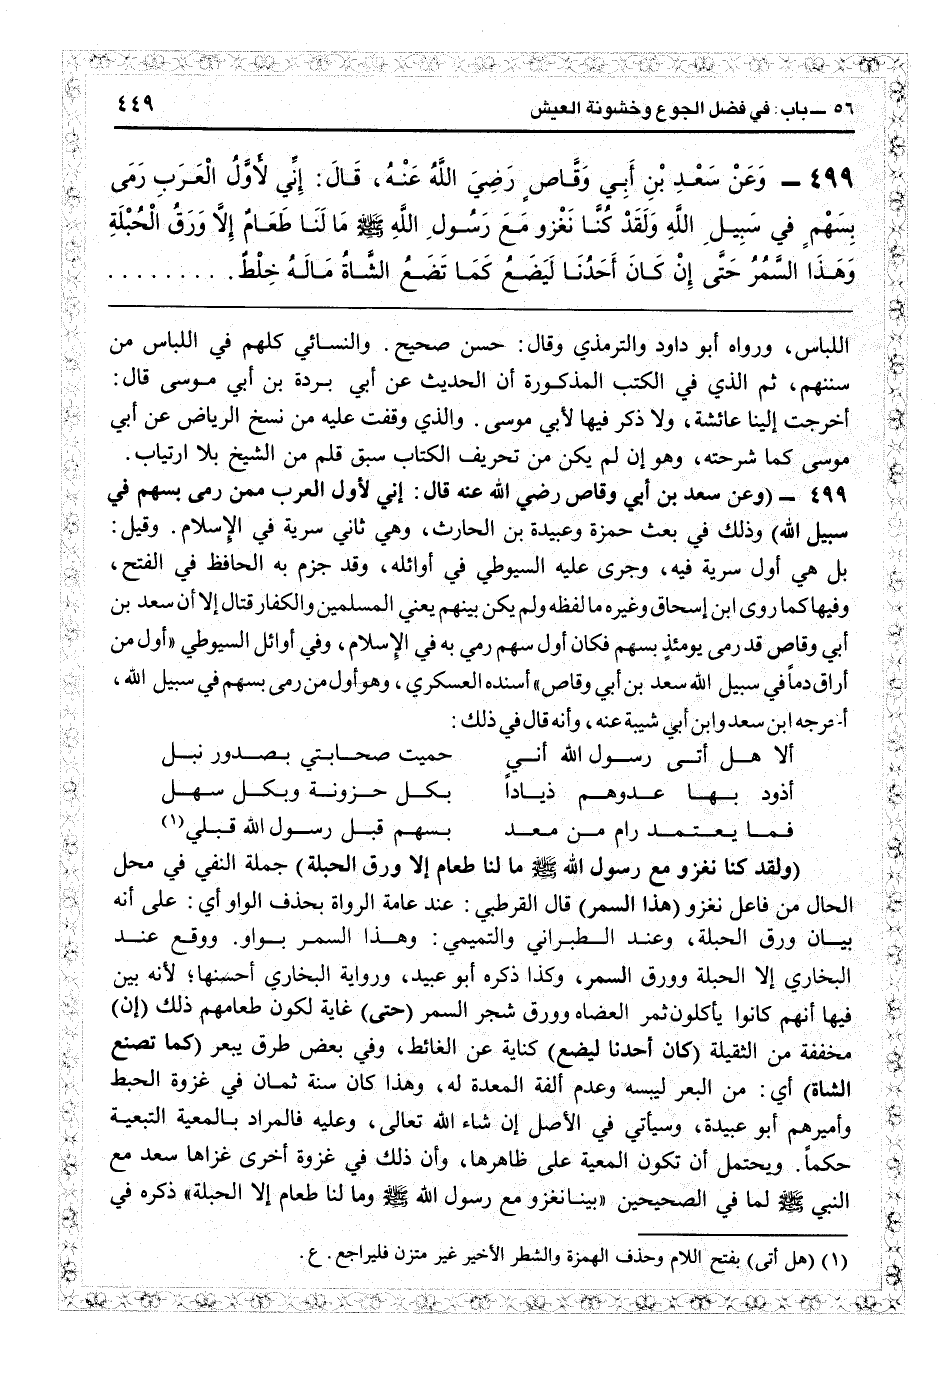 ٥٦ ـ باب: في فضل الجوع وخشونة العيش ٤٤٩
٤٩٩ ـ وَعَنْ سَعْدِ بْنِ أَبِي وَقَّاصٍ رَضِيَ اللَّهُ عَنْهُ، قَالَ: إِنِّي لَأَوَّلُ الْعَرَبِ رَمَى
بِسَهْمٍ فِي سَبِيلِ اللَّهِ وَلَقَدْ كُنَّا نَغْزو مَعَ رَسُولِ اللَّهِ ﷺ مَا لَنَا طَعَامٌ إِلَّا وَرَقُ الْحُبْلَةِ
وَهَذَا السَّمُرُ حَتَّى إِنْ كَانَ أَحَدُنَا لَيَضَعُ كَمَا تَضَعُ الشَّاةُ مَالَهُ خِلْطٌ. . . . . . . . . .
اللباس، ورواه أبو داود والترمذي وقال: حسن صحيح. والنسائي كلهم في اللباس من
سننهم، ثم الذي في الكتب المذكورة أن الحديث عن أبي بردة بن أبي موسى قال:
أخرجت إلينا عائشة، ولا ذكر فيها لأبي موسى. والذي وقفت عليه من نسخ الرياض عن أبي
موسى كما شرحته، وهو إن لم يكن من تحريف الكتاب سبق قلم من الشيخ بلا ارتياب.
٤٩٩ ـ (وعن سعد بن أبي وقاص رضي الله عنه قال: إني لأول العرب ممن رمى بسهم في
سبيل الله) وذلك في بعث حمزة وعبيدة بن الحارث، وهي ثاني سرية في الإسلام. وقيل:
بل هي أول سرية فيه، وجرى عليه السيوطي في أوائله، وقد جزم به الحافظ في الفتح،
وفيها كما روى ابن إسحاق وغيره ما لفظه ولم يكن بينهم يعني المسلمين والكفار قتال إلا أن سعد بن
أبي وقاص قد رمى يومئذٍ بسهم فكان أول سهم رمي به في الإسلام، وفي أوائل السيوطي «أول من
أراق دماً في سبيل الله سعد بن أبي وقاص» أسنده العسكري، وهو أول من رمى بسهم في سبيل الله،
أخرجه ابن سعد وابن أبي شيبة عنه، وأنه قال في ذلك:
ألا هل أتى رسول الله أني حميت صحابتي بصدور نبل
أذود بها عدوهم ذياداً بكل حزونة وبكل سهل
فما يعتمد رام من معد بسهم قبل رسول الله قبلي(١)
(ولقد كنا نغزو مع رسول الله ﷺ ما لنا طعام إلا ورق الحبلة) جملة النفي في محل
الحال من فاعل نغزو (هذا السمر) قال القرطبي: عند عامة الرواة بحذف الواو أي: على أنه
بيان ورق الحبلة، وعند الطبراني والتميمي: وهذا السمر بواو. ووقع عند
البخاري إلا الحبلة وورق السمر، وكذا ذكره أبو عبيد، ورواية البخاري أحسنها؛ لأنه بين
فيها أنهم كانوا يأكلون ثمر العضاه وورق شجر السمر (حتى) غاية لكون طعامهم ذلك (إن)
مخففة من الثقيلة (كان أحدنا ليضع) كناية عن الغائط، وفي بعض طرق يبعر (كما تصنع
الشاة) أي: من البعر ليبسه وعدم ألفة المعدة له، وهذا كان سنة ثمان في غزوة الحبط
وأميرهم أبو عبيدة، وسيأتي في الأصل إن شاء الله تعالى، وعليه فالمراد بالمعية التبعية
حكماً. ويحتمل أن تكون المعية على ظاهرها، وأن ذلك في غزوة أخرى غزاها سعد مع
النبي ﷺ لما في الصحيحين «بينا نغزو مع رسول الله ﷺ وما لنا طعام إلا الحبلة» ذكره في
(١) (هل أتى) بفتح اللام وحذف الهمزة والشطر الأخير غير متزن فليراجع. ع.